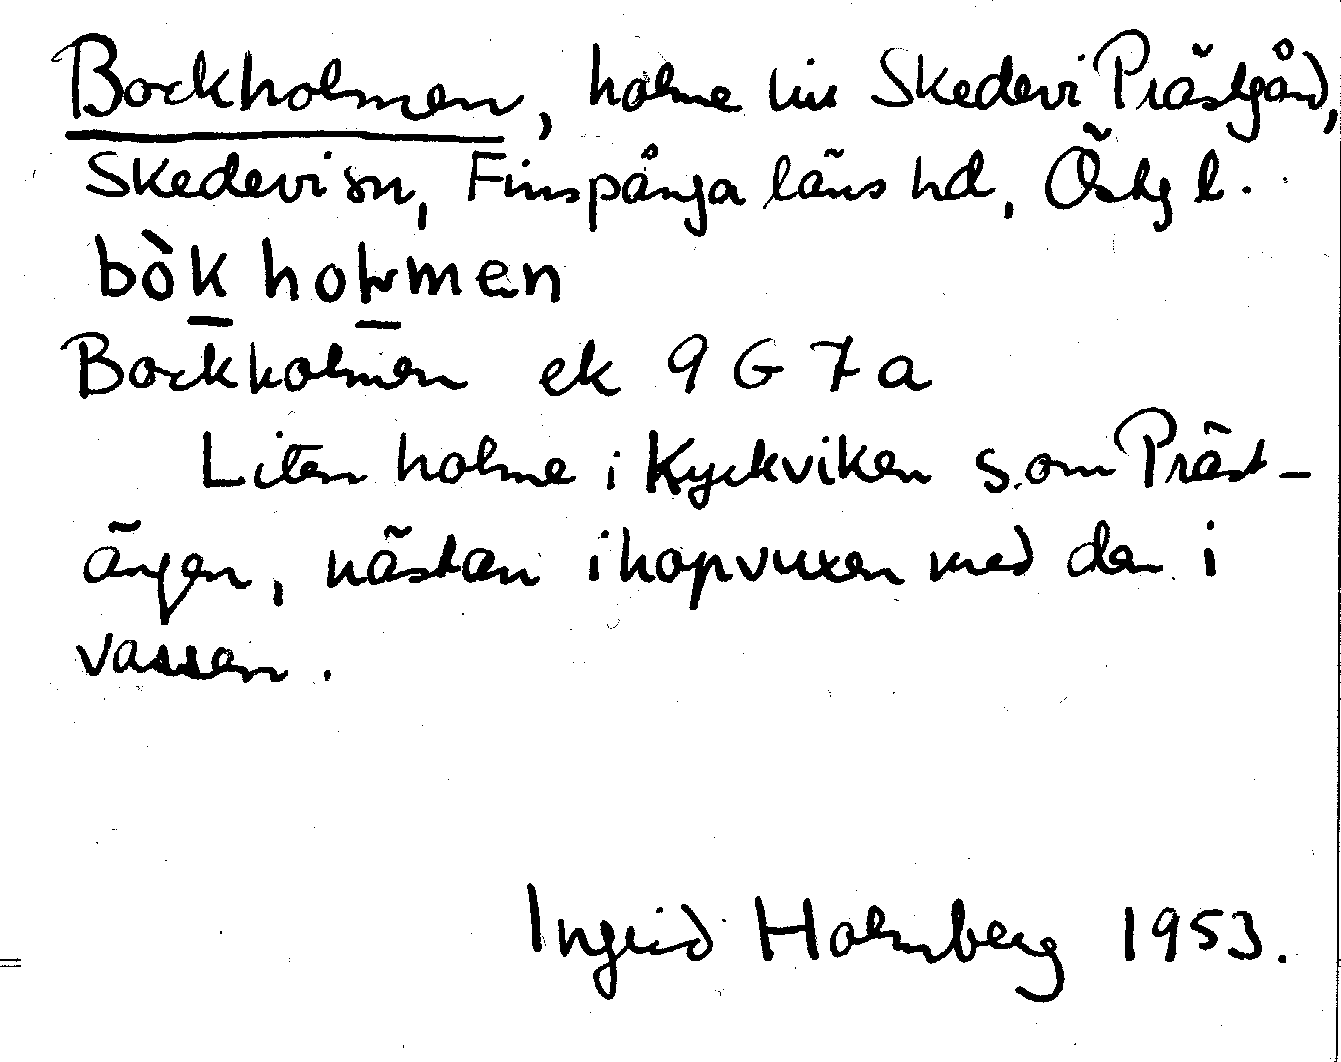 Bockholmen, holme hin Skedevi Prästgård,
Skedevi sn, Finspånga läns hd, Östg l.
bòk holmen
Bockholmen ek 9 G 7 a
Liten holme i Kyckviken s.om Präst-
ängen, nästan ihopvuxen med den i
vassen.
Ingrid Holmberg 1953.